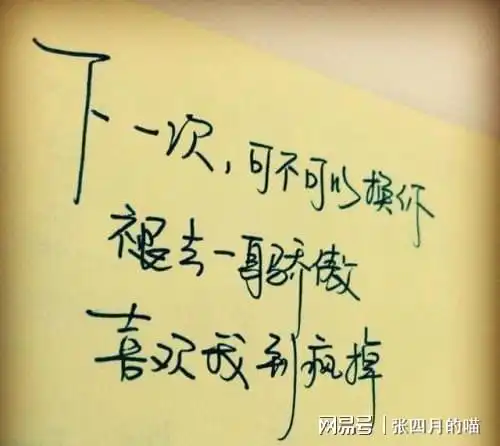 下一次,可不可以换你
褪去一身骄傲
喜欢我到疯掉
网易号|张四月的喵